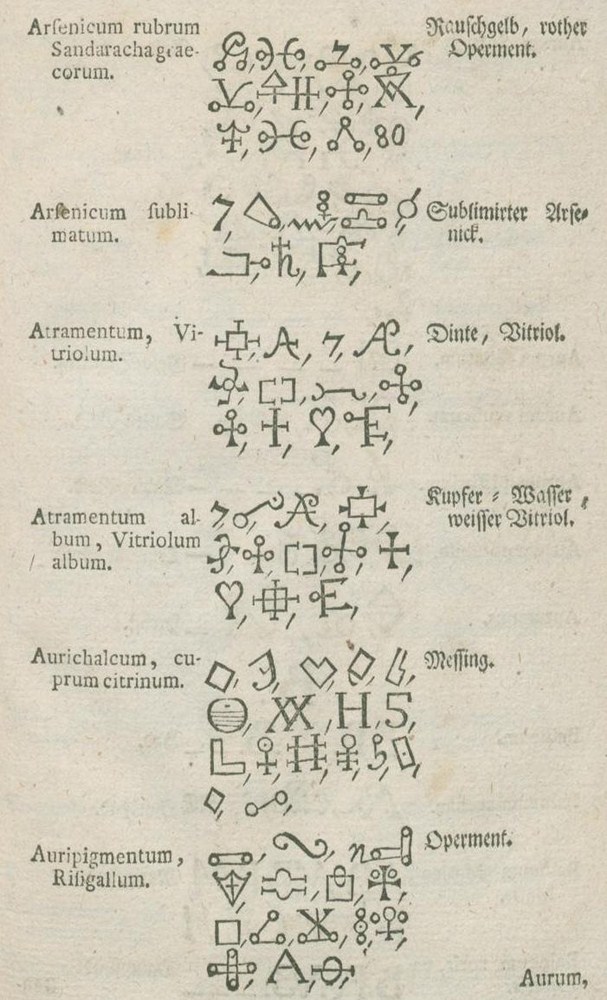 Arſenicum rubrum
Sandaracha grae-
corum.
Rauſchgelb, rother
Operment.
80
Arſenicum ſubli-
matum.
Sublimirter Arſe-
nick.
Atramentum, Vi-
triolum.
Dinte, Vitriol.
Atramentum al-
bum, Vitriolum
album.
Kupfer-Waſſer,
weiſſer Vitriol.
Aurichalcum, cu-
prum citrinum.
Meſſing.
Auripigmentum,
Riſigallum.
Operment.
Aurum,